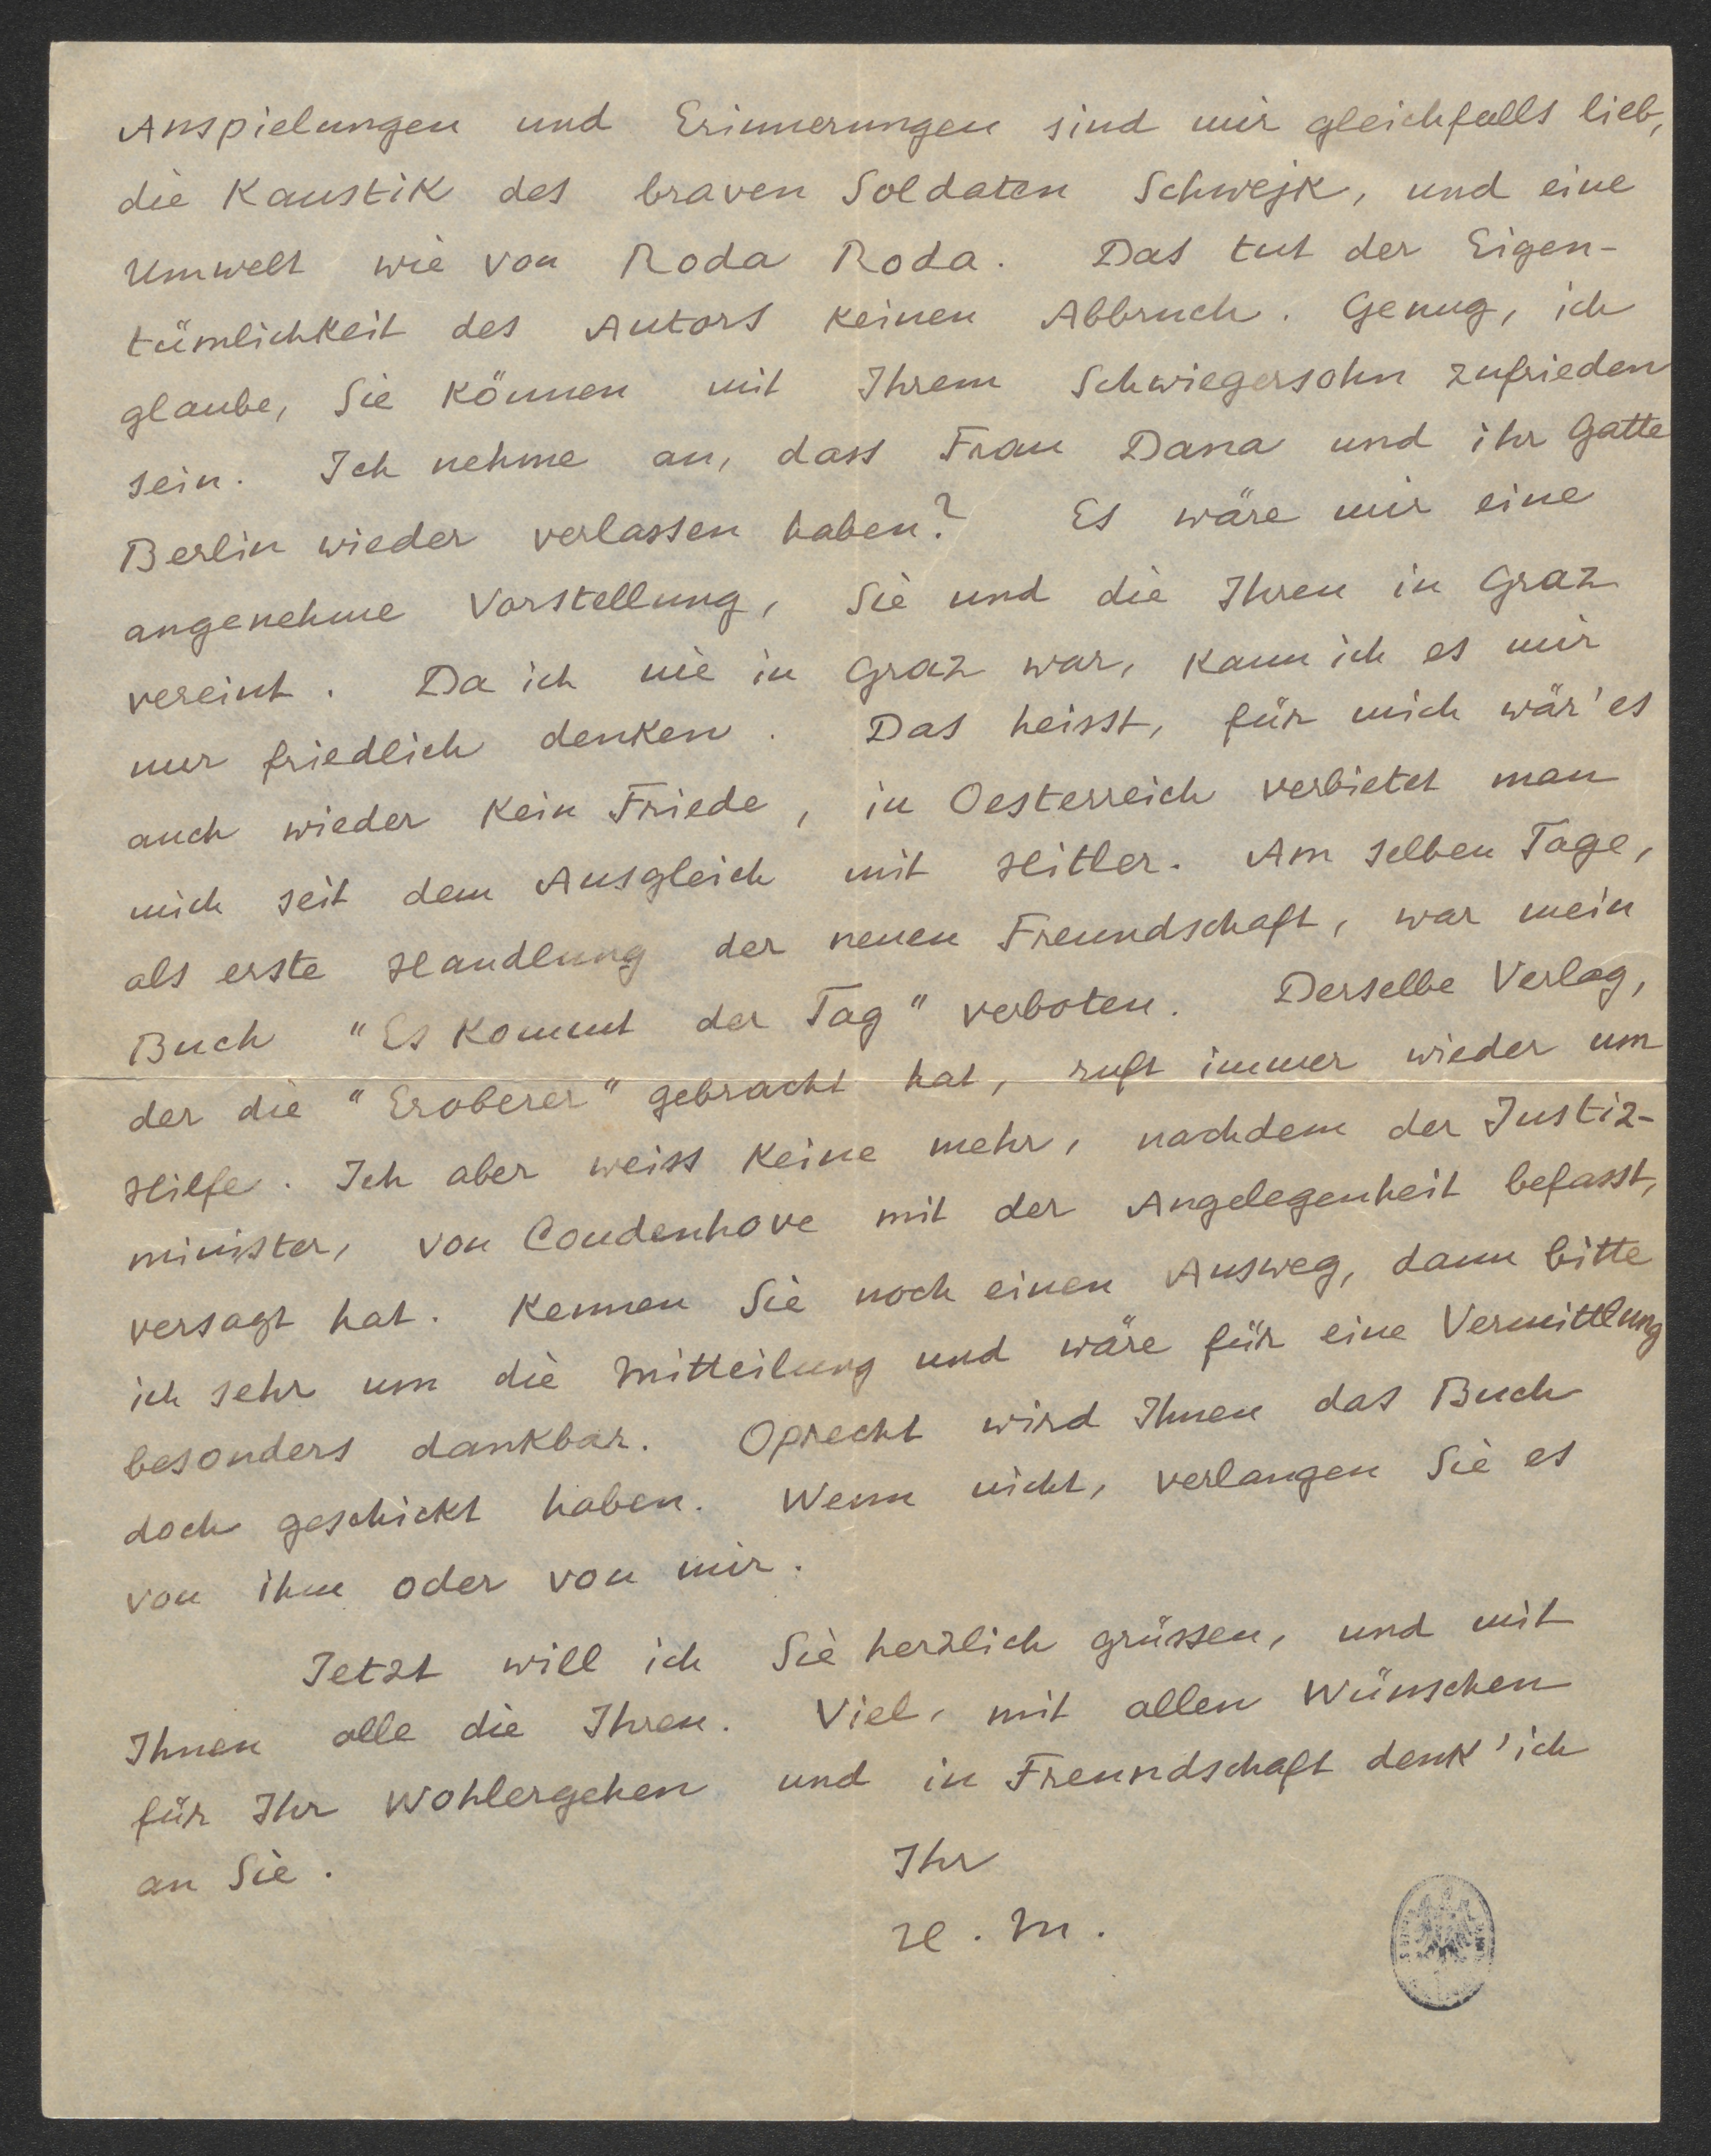 Anspielungen und Erinnerungen sind mir gleichfalls lieb,
die Kaustik des braven Soldaten Schwejk, und eine
Umwelt wie von Roda Roda. Das tut der Eigen-
tümlichkeit des Autors keinen Abbruch. Genug, ich
glaube, Sie können mit Ihrem Schwiegersohn zufrieden
sein. Ich nehme an, dass Frau Dana und ihr Gatte
Berlin wieder verlassen haben? Es wäre mir eine
angenehme Vorstellung, Sie und die Ihren in Graz
vereint. Da ich nie in Graz war, kann ich es mir
nur friedlich denken. Das heisst, für mich wär' es
auch wieder kein Friede, in Oesterreich verbietet man
mich seit dem Ausgleich mit Hitler. Am selben Tage,
als erste Handlung der neuen Freundschaft, war mein
Buch "Es kommt der Tag" verboten. Derselbe Verlag,
der die "Eroberer" gebracht hat, ruft immer wieder um
Hilfe. Ich aber weiss keine mehr, nachdem der Justiz-
minister, von Coudenhove mit der Angelegenheit befasst,
versagt hat. Kennen Sie noch einen Ausweg, dann bitte
ich sehr um die Mitteilung und wäre für eine Vermittlung
besonders dankbar. Oprecht wird Ihnen das Buch
doch geschickt haben. Wenn nicht, verlangen Sie es
von ihm oder von mir.
Jetzt will ich Sie herzlich grüssen, und mit
Ihnen alle die Ihren. Viel, mit allen Wünschen
für Ihr Wohlergehen und in Freundschaft denk' ich
an Sie.
Ihr
H. M.